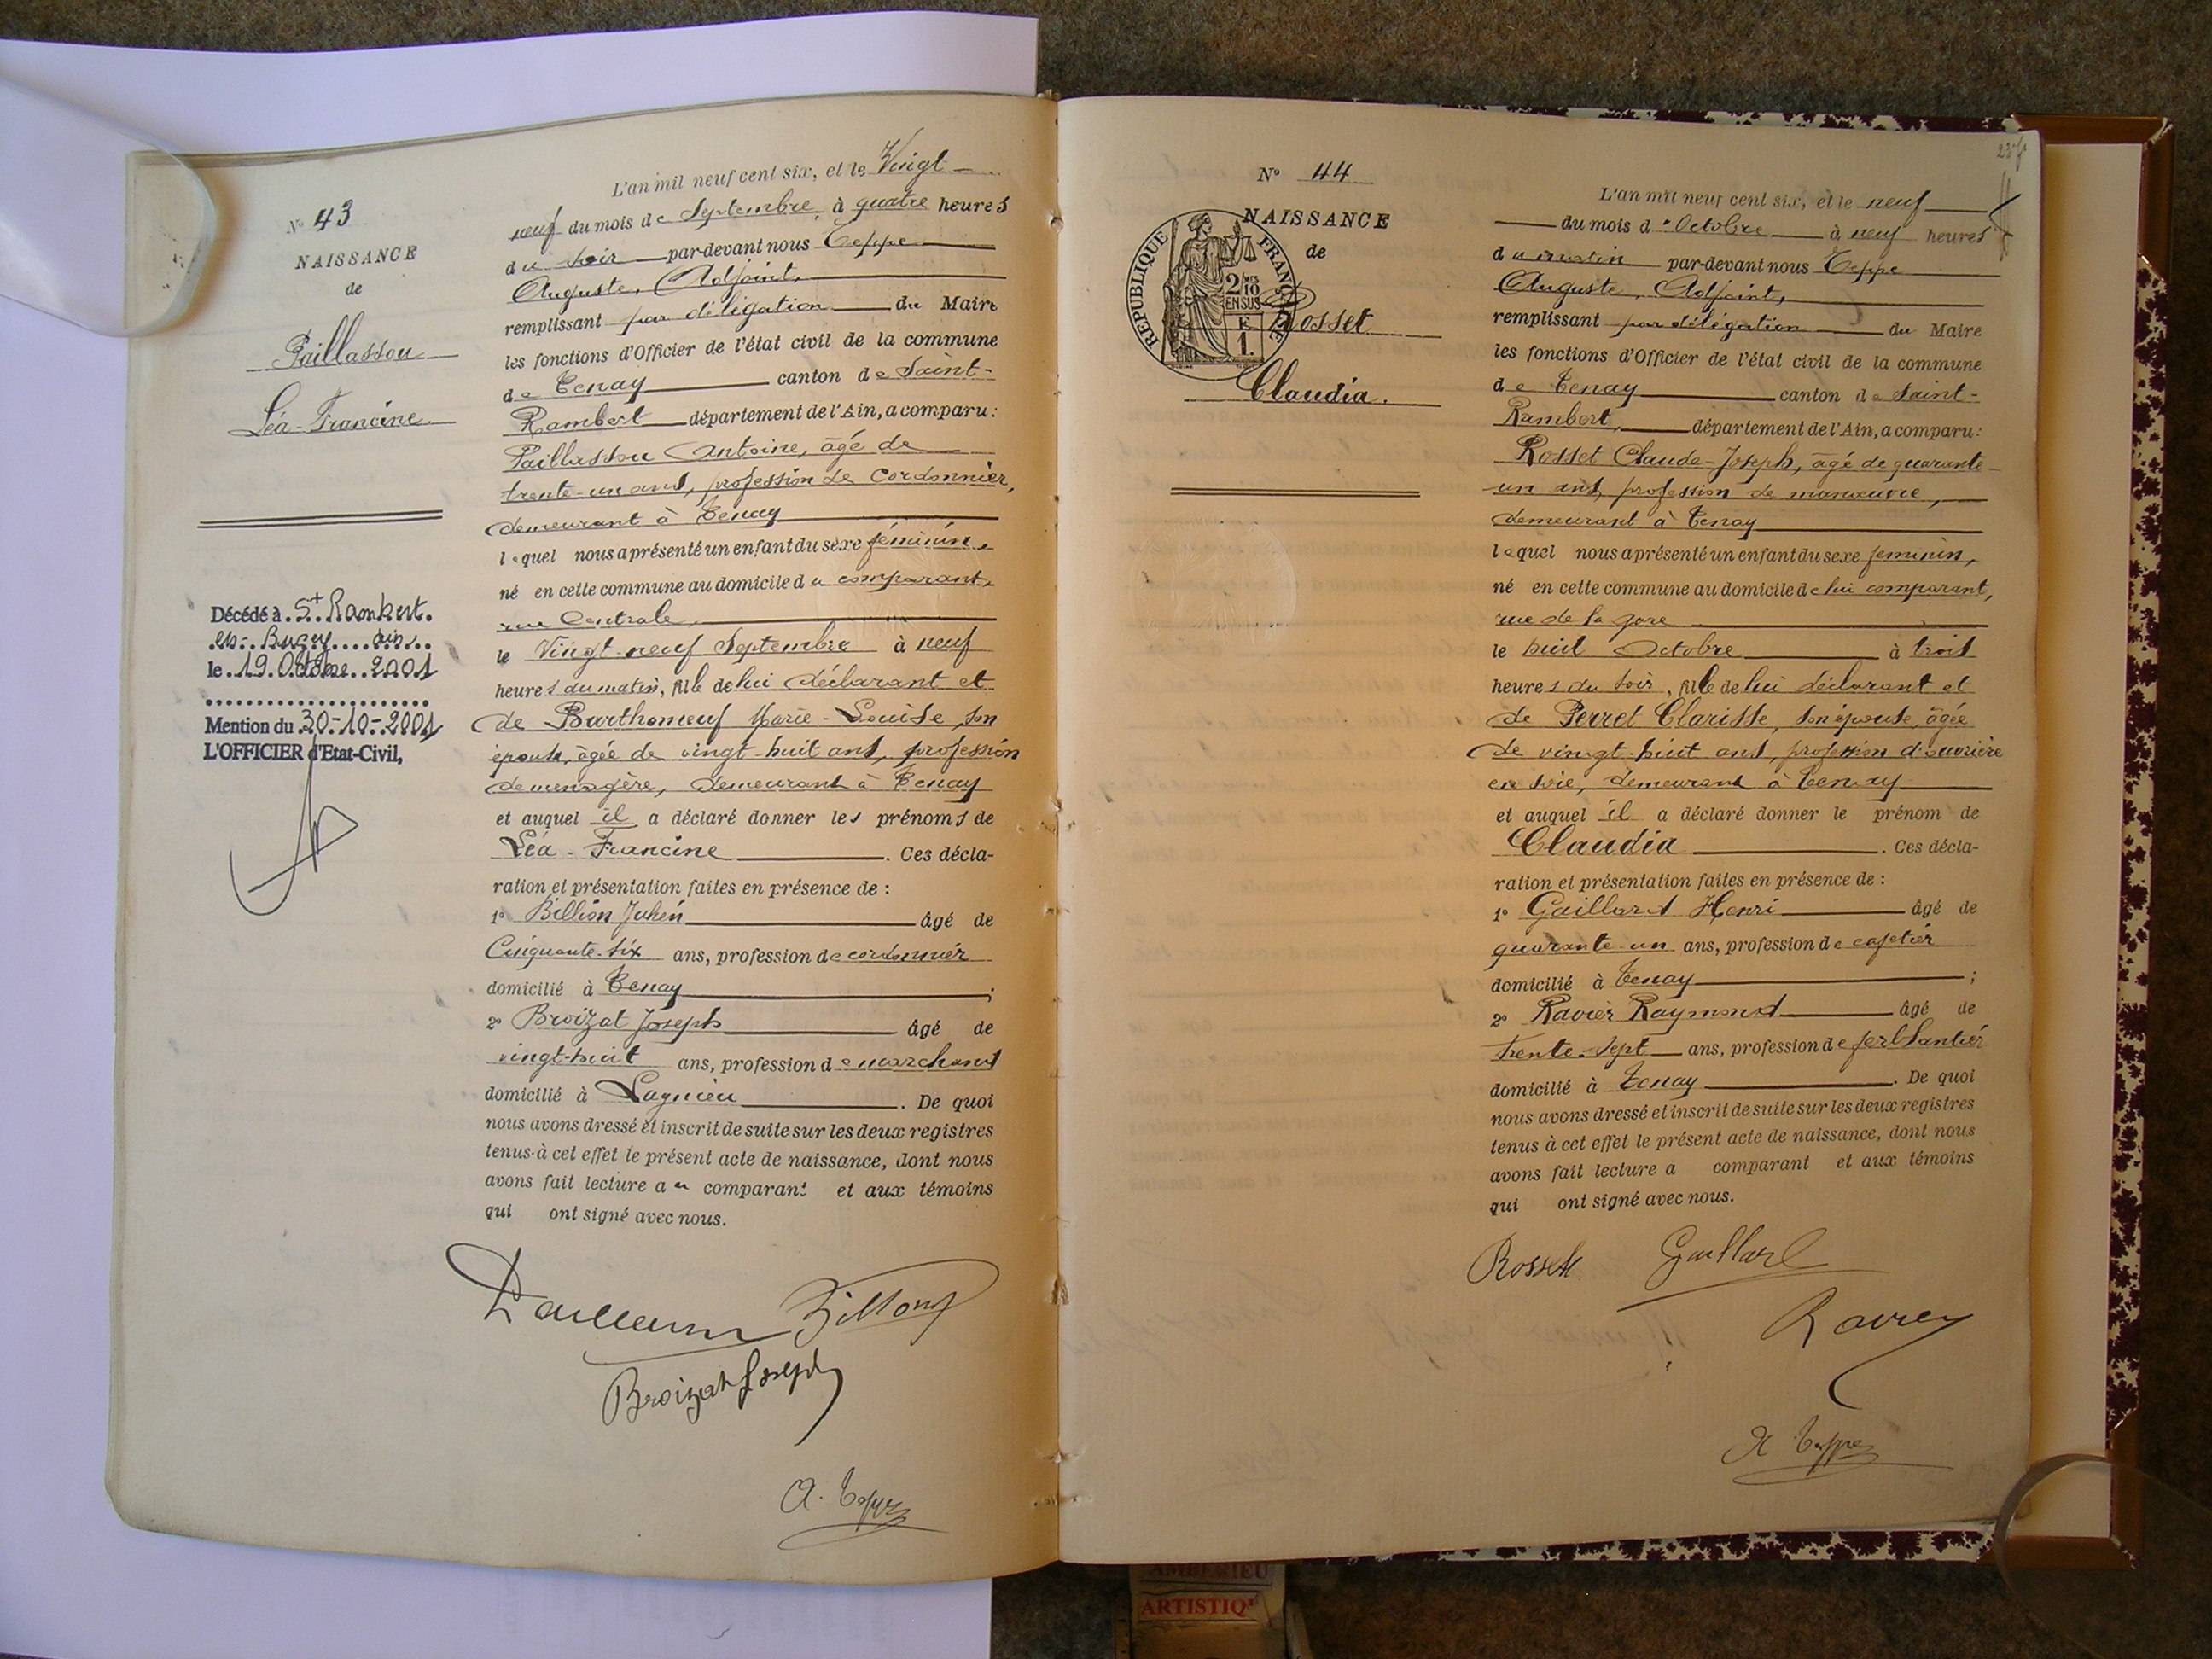 N° 43
NAISSANCE
de
Paillasson
Léa-Francine
Décédé à St Rambert.
en-Bugey ain
le 19 Octobre 2001
Mention du 30-10-2001
L'OFFICIER d'Etat-Civil,
L'an mil neuf cent six, et le Vingt-
neuf du mois de Septembre, à quatre heures
du soir par-devant nous Teppe
Auguste, Adjoint,
remplissant par délégation du Maire
les fonctions d'Officier de l'état civil de la commune
de Tenay canton de Saint-
Rambert département de l'Ain, a comparu:
Paillasson Antoine, âgé de
trente-un ans, profession de Cordonnier,
demeurant à Tenay
lequel nous a présenté un enfant du sexe féminin,
né en cette commune au domicile du comparant,
rue Centrale,
le Vingt-neuf Septembre à neuf
heures du matin, fille de lui déclarant et
de Barthomeuf Marie-Louise, son
épouse, âgée de vingt-huit ans, profession
de menagère, demeurant à Tenay
et auquel il a déclaré donner les prénoms de
Léa-Francine. Ces décla-
ration et présentation faites en présence de :
1° Billion Julien âgé de
Cinquante-six ans, profession de cordonnier
domicilié à Tenay ;
2° Broizat Joseph âgé de
vingt-huit ans, profession de marchand
domicilié à Lagnieu. De quoi
nous avons dressé et inscrit de suite sur les deux registres
tenus à cet effet le présent acte de naissance, dont nous
avons fait lecture au comparant et aux témoins
qui ont signé avec nous.
Billion
Broizat Joseph
A. Teppe
N° 44
NAISSANCE
de
REPUBLIQUE FRANÇAISE
2/10
EN SUS
1.
Rosset
Claudia.
L'an mil neuf cent six, et le neuf
du mois d'Octobre à neuf heures
du matin par-devant nous Teppe
Auguste, Adjoint,
remplissant par délégation du Maire
les fonctions d'Officier de l'état civil de la commune
de Tenay canton de Saint-
Rambert, département de l'Ain, a comparu:
Rosset Claude-Joseph, âgé de quarante-
un ans, profession de manœuvre,
demeurant à Tenay
lequel nous a présenté un enfant du sexe feminin,
né en cette commune au domicile de lui comparant,
rue de la gare
le huit Octobre à trois
heures du soir, fille de lui déclarant et
de Perret Clarisse, son épouse, âgée
de vingt-huit ans, profession d'ouvrière
en soie, demeurant à Tenay
et auquel il a déclaré donner le prénom de
Claudia. Ces décla-
ration et présentation faites en présence de :
1° Gaillard Henri âgé de
quarante-un ans, profession de cafetier
domicilié à Tenay ;
2° Ravier Raymond âgé de
trente-sept ans, profession de ferblantier
domicilié à Tenay. De quoi
nous avons dressé et inscrit de suite sur les deux registres
tenus à cet effet le présent acte de naissance, dont nous
avons fait lecture a comparant et aux témoins
qui ont signé avec nous.
Rosset Gaillard
Ravier
A Teppe
AMBERIEU
ARTISTIQ